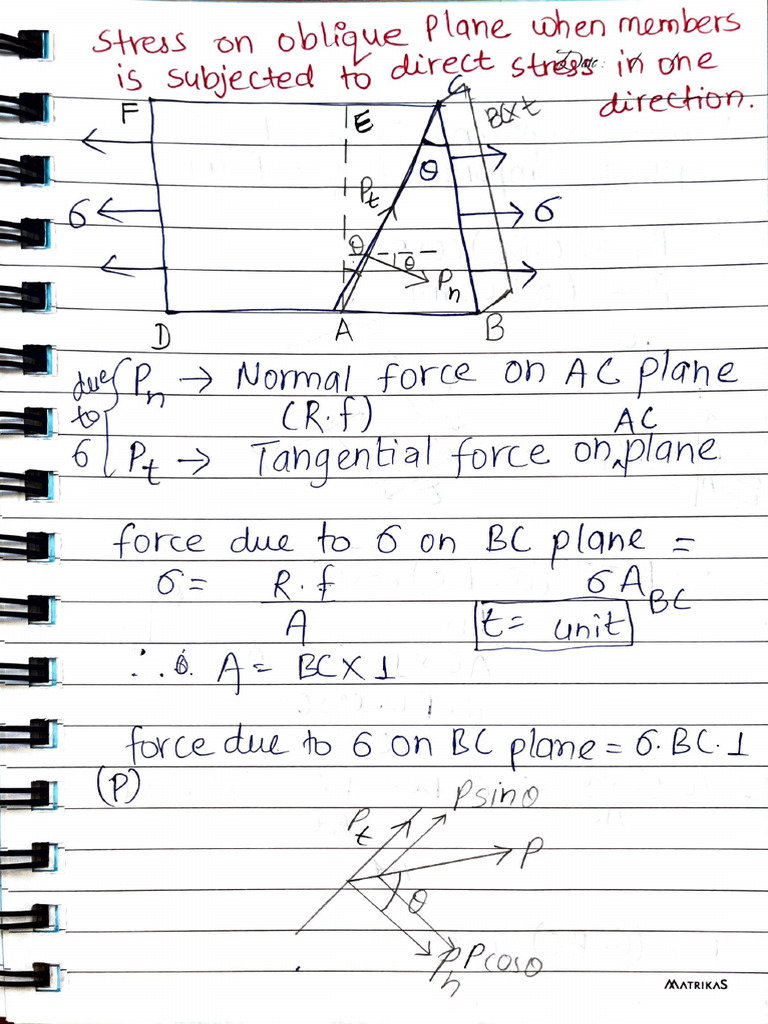 Stress on oblique Plane when members
is subjected to direct stress in one
direction.
F E C BC×t
θ
P_t
σ σ
θ θ
P_n
D A B
due to σ { P_n → Normal force on AC plane
(R.f) AC
P_t → Tangential force on ^ plane
force due to σ on BC plane =
σ = R.f / A σ A_BC
t = unit
∴ A = BC × 1
force due to σ on BC plane = σ. BC. 1
(P)
P_t P sinθ
P
θ
P_n P cosθ
MATRIKAS